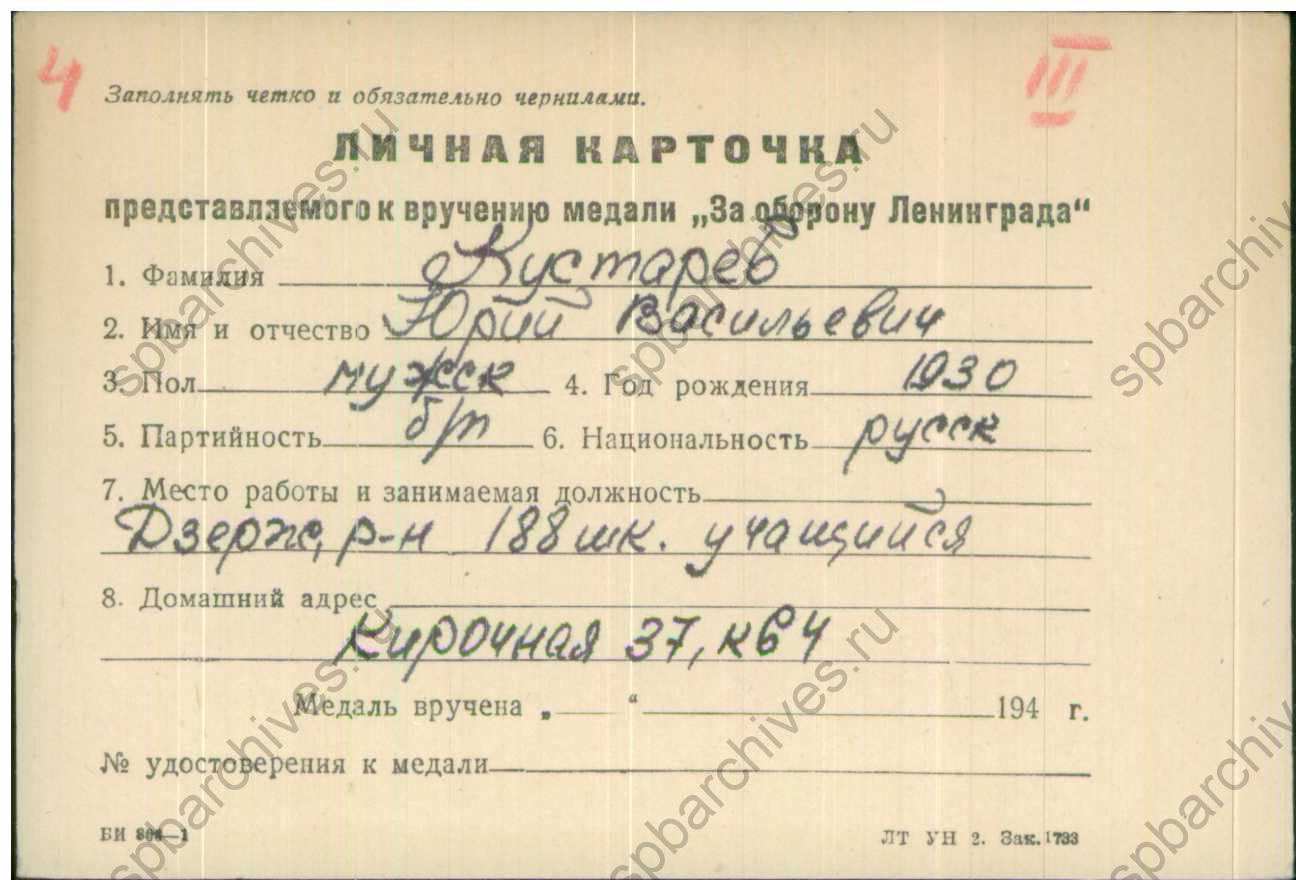 4
III
Заполнять четко и обязательно чернилами.
ЛИЧНАЯ КАРТОЧКА
представляемого к вручению медали „За оборону Ленинграда“
1. Фамилия Кустарев
2. Имя и отчество Юрий Васильевич
3. Пол мужск 4. Год рождения 1930
5. Партийность б/п 6. Национальность русск
7. Место работы и занимаемая должность
Дзерж, р-н 188 шк. учащийся
8. Домашний адрес
Кирочная 37, кв 4
Медаль вручена „ “ 194 г.
№ удостоверения к медали
БИ
ЛТ УН 2. Зак. 1733
spbarchives.ru